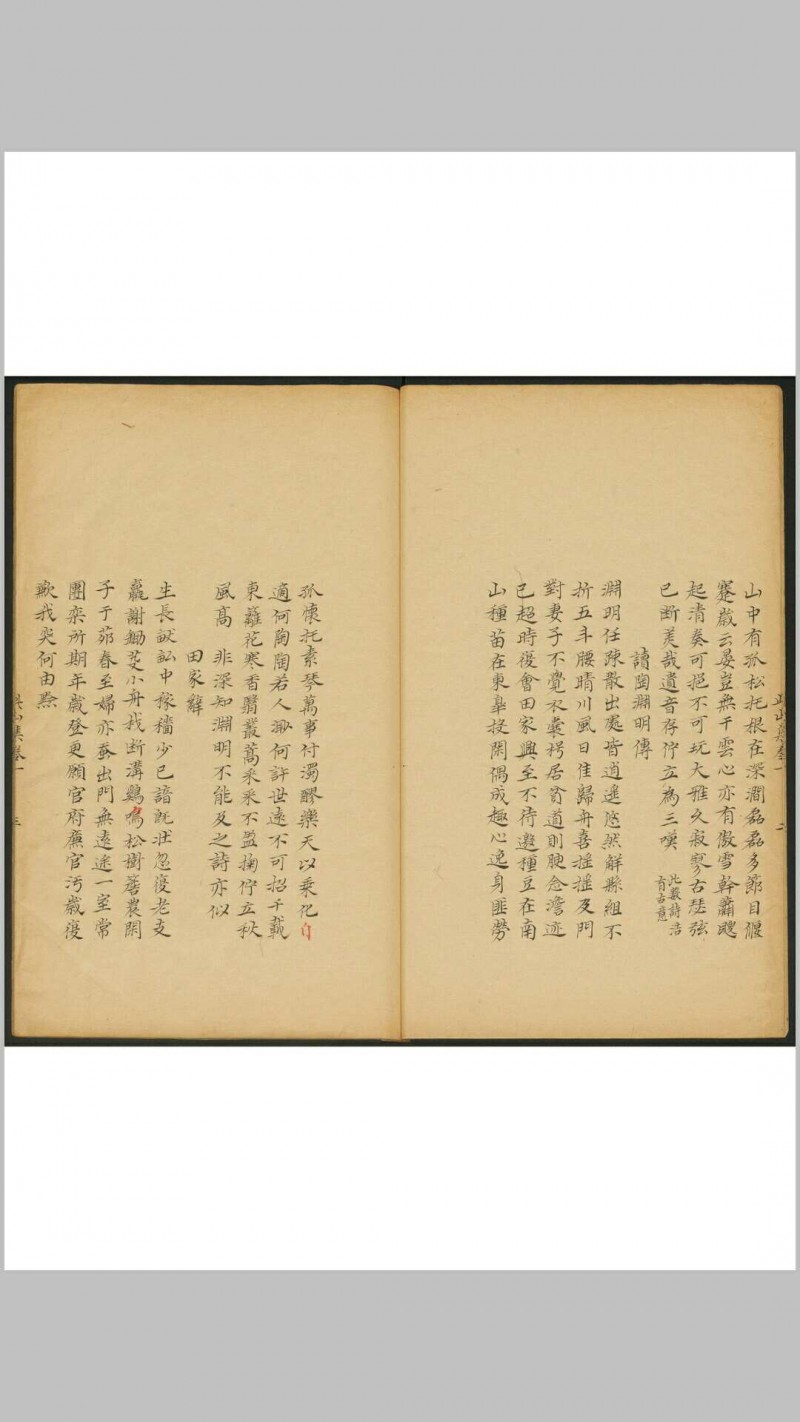 山中有孤松托根在深澗磊磊多節目偃
蹇歲云晏豈無干雲心亦有傲雪幹蕭颼
起清奏可挹不可玩大雅久寂寥古瑟弦
已断美哉遺音存佇立為三嘆
此數詩浩
有古意
讀陶淵明傳
淵明任疎散出處皆逍遥悠然解縣組不
折五斗腰晴川風日佳歸舟喜摇摇及門
對妻子不覺衣裳枵居貧道則腴念澹迹
已超時復會田家興至不待邀種豆在南
山種苗在東臯投閑偶成趣心逸身匪勞
孤懷托素琴萬事付濁醪樂天以乗化自
適何陶陶若人邈何許世遠不可招千載
東籬花寒香翳叢蒿采采不盈掬佇立秋
風高
非深知淵明不能及之詩亦似
田家辭
生長畎畝中稼穡少已諳既壯忽復老支
羸謝鋤芟小舟我断溝鷄鳴松樹菴農閑
子于茆春至婦亦蚕出門無遠途一室常
團栾所期年歲登更願官府廉官污歲復
歉我突何由黔